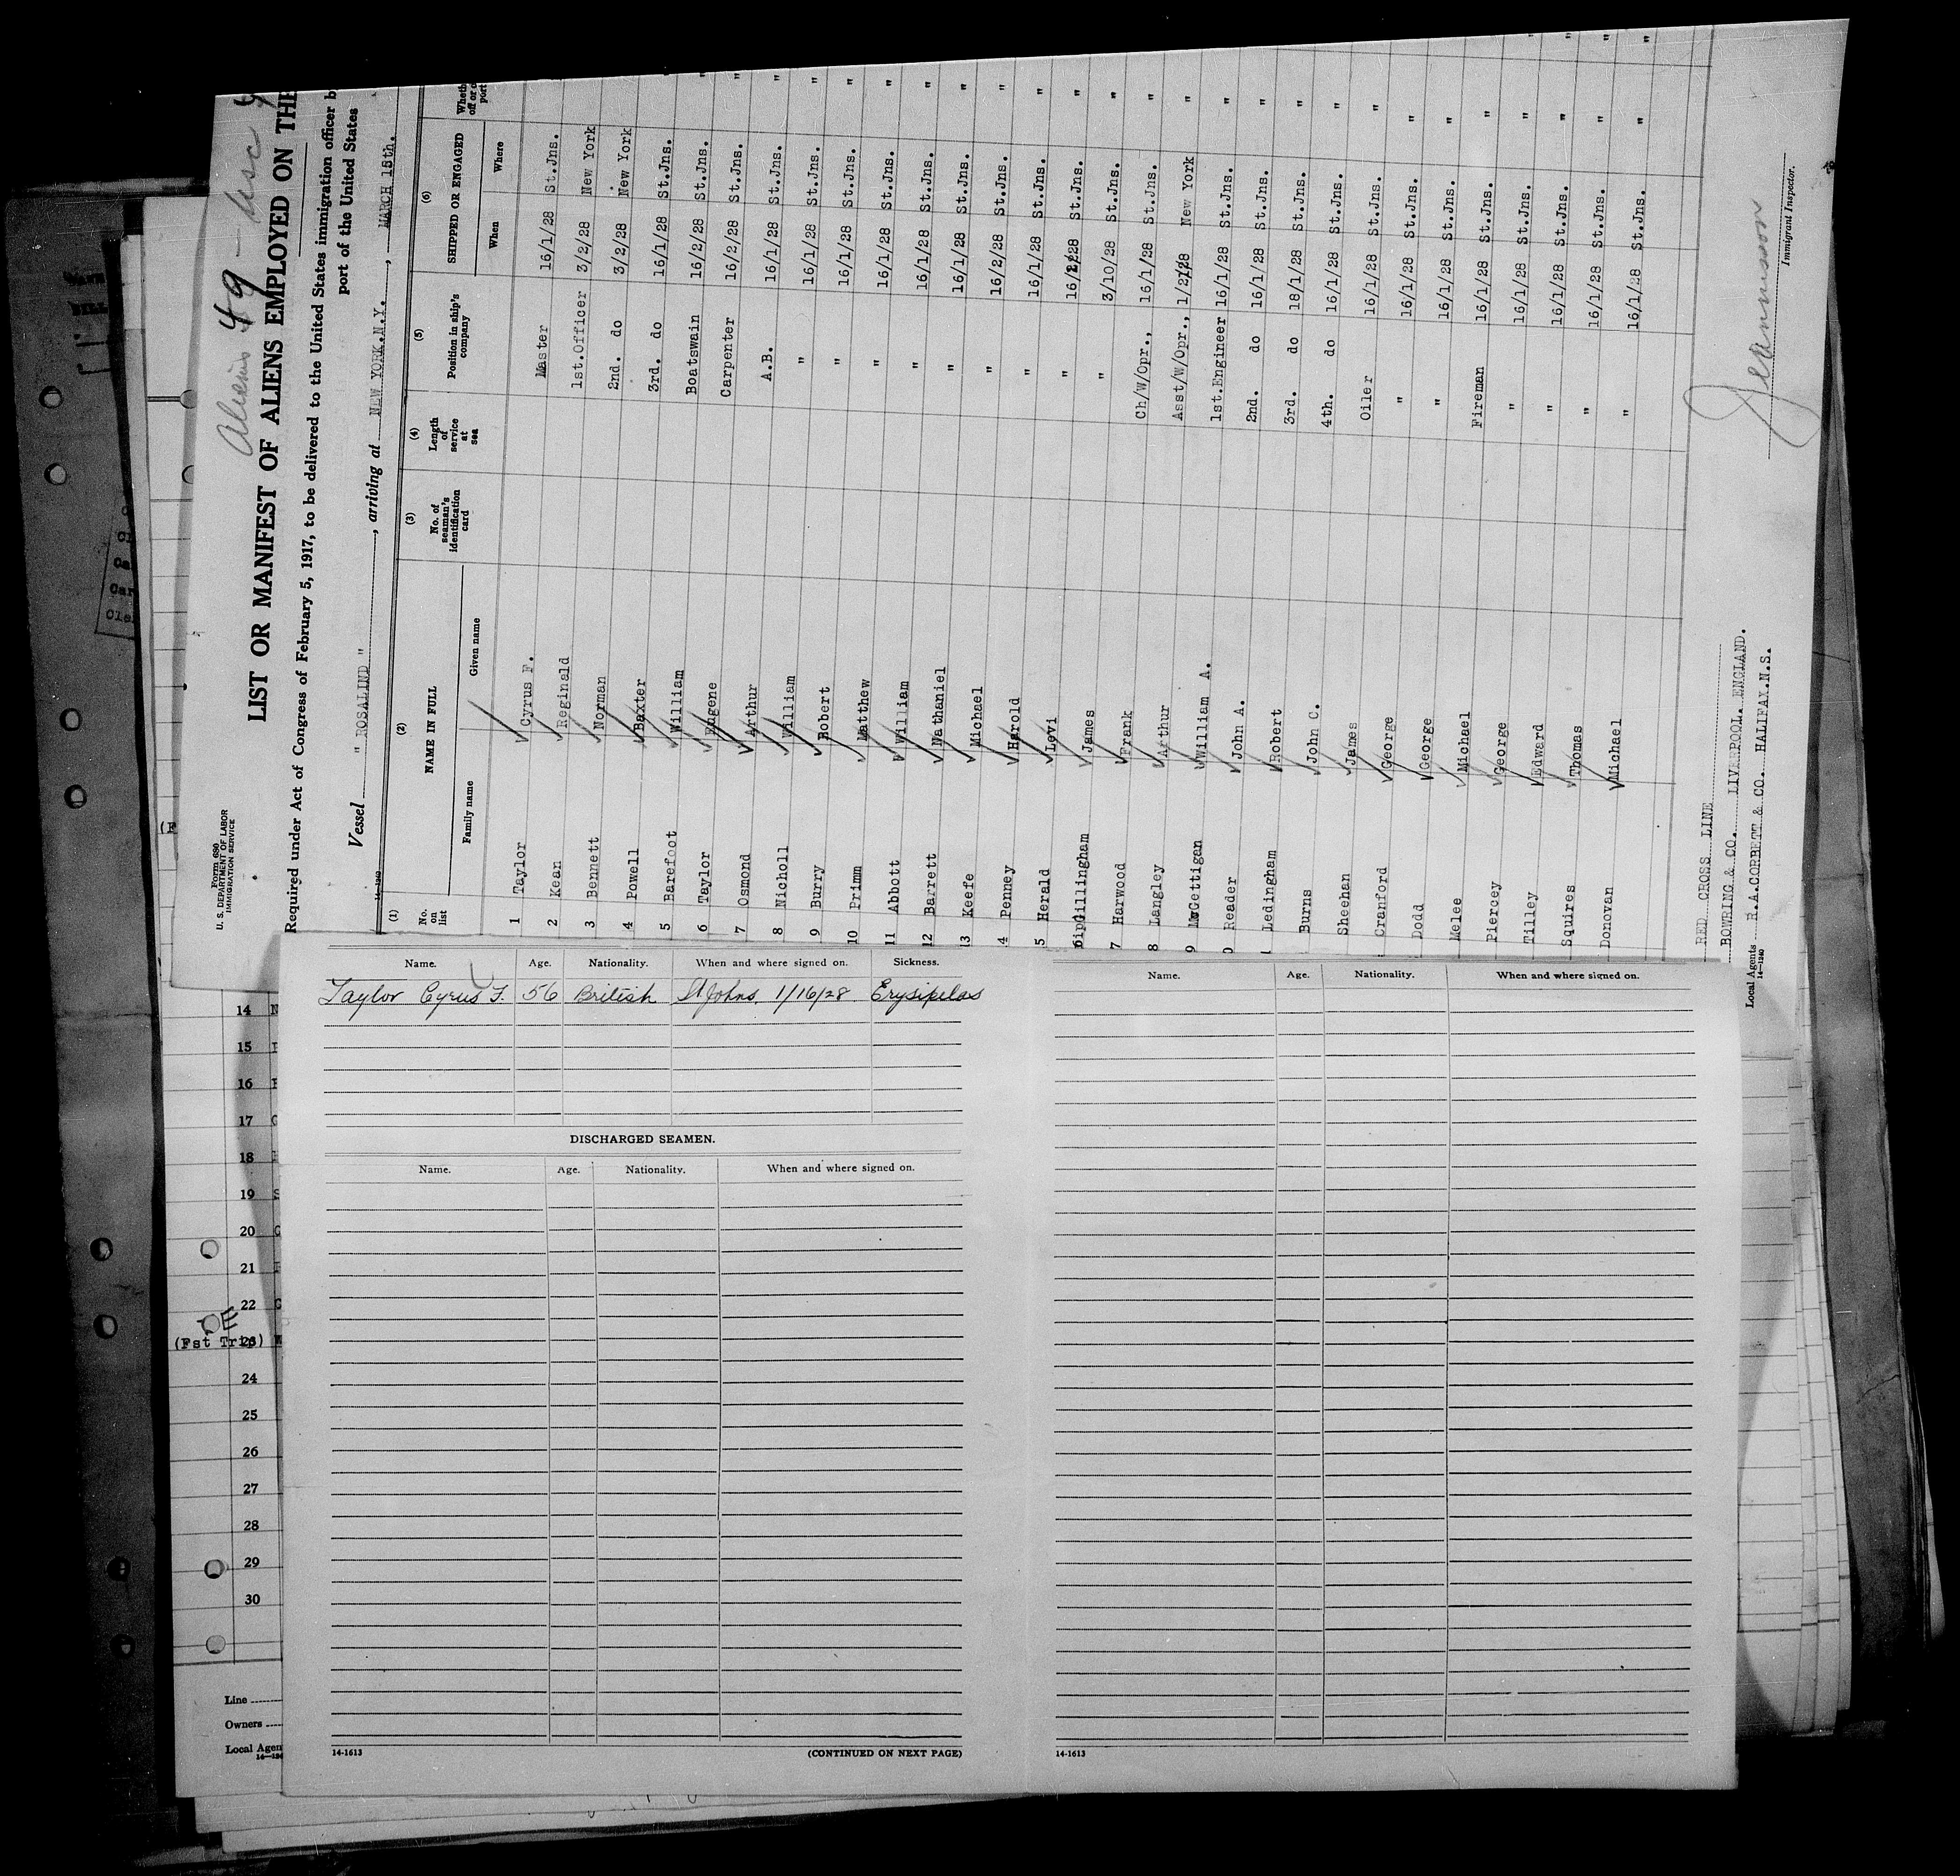 Aliens 49 - desc
Form 680
U. S. DEPARTMENT OF LABOR
IMMIGRATION SERVICE
LIST OR MANIFEST OF ALIENS EMPLOYED ON THE
Required under Act of Congress of February 5, 1917, to be delivered to the United States immigration officer b
port of the United States
Vessel " ROSALIND " , arriving at NEW YORK.N.Y. , MARCH 15th.
14-1240
(1) (2) (3) (4) (5) (6)
No. on list NAME IN FULL No. of seaman's identification card Length of service at sea Position in ship's company SHIPPED OR ENGAGED Wheth off or d port
Family name Given name When Where
1 Taylor Cyrus F. Master 16/1/28 St.Jns.
2 Kean Reginald 1st.Officer 3/2/28 New York
3 Bennett Norman 2nd. do 3/2/28 New York
4 Powell Baxter 3rd. do 16/1/28 St.Jns.
5 Barefoot William Boatswain 16/2/28 St.Jns. "
6 Taylor Eugene Carpenter 16/2/28 St.Jns. "
7 Osmond Arthur A.B. 16/1/28 St.Jns. "
8 Nicholl William " 16/1/28 St.Jns. "
9 Burry Robert " 16/1/28 St.Jns. "
10 Primm Matthew " 16/1/28 St.Jns. "
11 Abbott William " 16/1/28 St.Jns. "
12 Barrett Nathaniel " 16/1/28 St.Jns. "
13 Keefe Michael " 16/2/28 St.Jns. "
4 Penney Harold " 16/1/28 St.Jns. "
5 Herald Levi " 16/2/28 St.Jns. "
Gillingham James " 3/10/28 St.Jns. "
7 Harwood Frank Ch/W/Opr., 16/1/28 St.Jns. "
8 Langley Arthur Asst/W/Opr., 1/2/28 New York "
9 McGettigan William A. 1st.Engineer 16/1/28 St.Jns. "
0 Reader John A. 2nd. do 16/1/28 St.Jns. "
1 Ledingham Robert 3rd. do 18/1/28 St.Jns. "
Burns John C. 4th. do 16/1/28 St.Jns. "
Sheehan James Oiler 16/1/28 St.Jns. "
Cranford George " 16/1/28 St.Jns. "
Dodd George " 16/1/28 St.Jns. "
Melee Michael Fireman 16/1/28 St.Jns. "
Piercey George " 16/1/28 St.Jns. "
Tilley Edward " 16/1/28 St.Jns. "
Squires Thomas " 16/1/28 St.Jns. "
Donovan Michael " 16/1/28 St.Jns. "
RED CROSS LINE
BOWRING & CO. LIVERPOOL. ENGLAND.
Local Agents R.A.CORBETT & CO. HALIFAX.N.S.
14-1240
Immigrant Inspector.
Name. Age. Nationality. When and where signed on. Sickness.
Taylor Cyrus F. 56 British St Johns, 1/16/28 Erysipelas
DISCHARGED SEAMEN.
Name. Age. Nationality. When and where signed on.
14-1613 (CONTINUED ON NEXT PAGE)
Name. Age. Nationality. When and where signed on.
14-1613
14
15
16
17
18
19
20
21
22
(Fst Trip) 23
24
25
26
27
28
29
30
Line
Owners
Local Agen